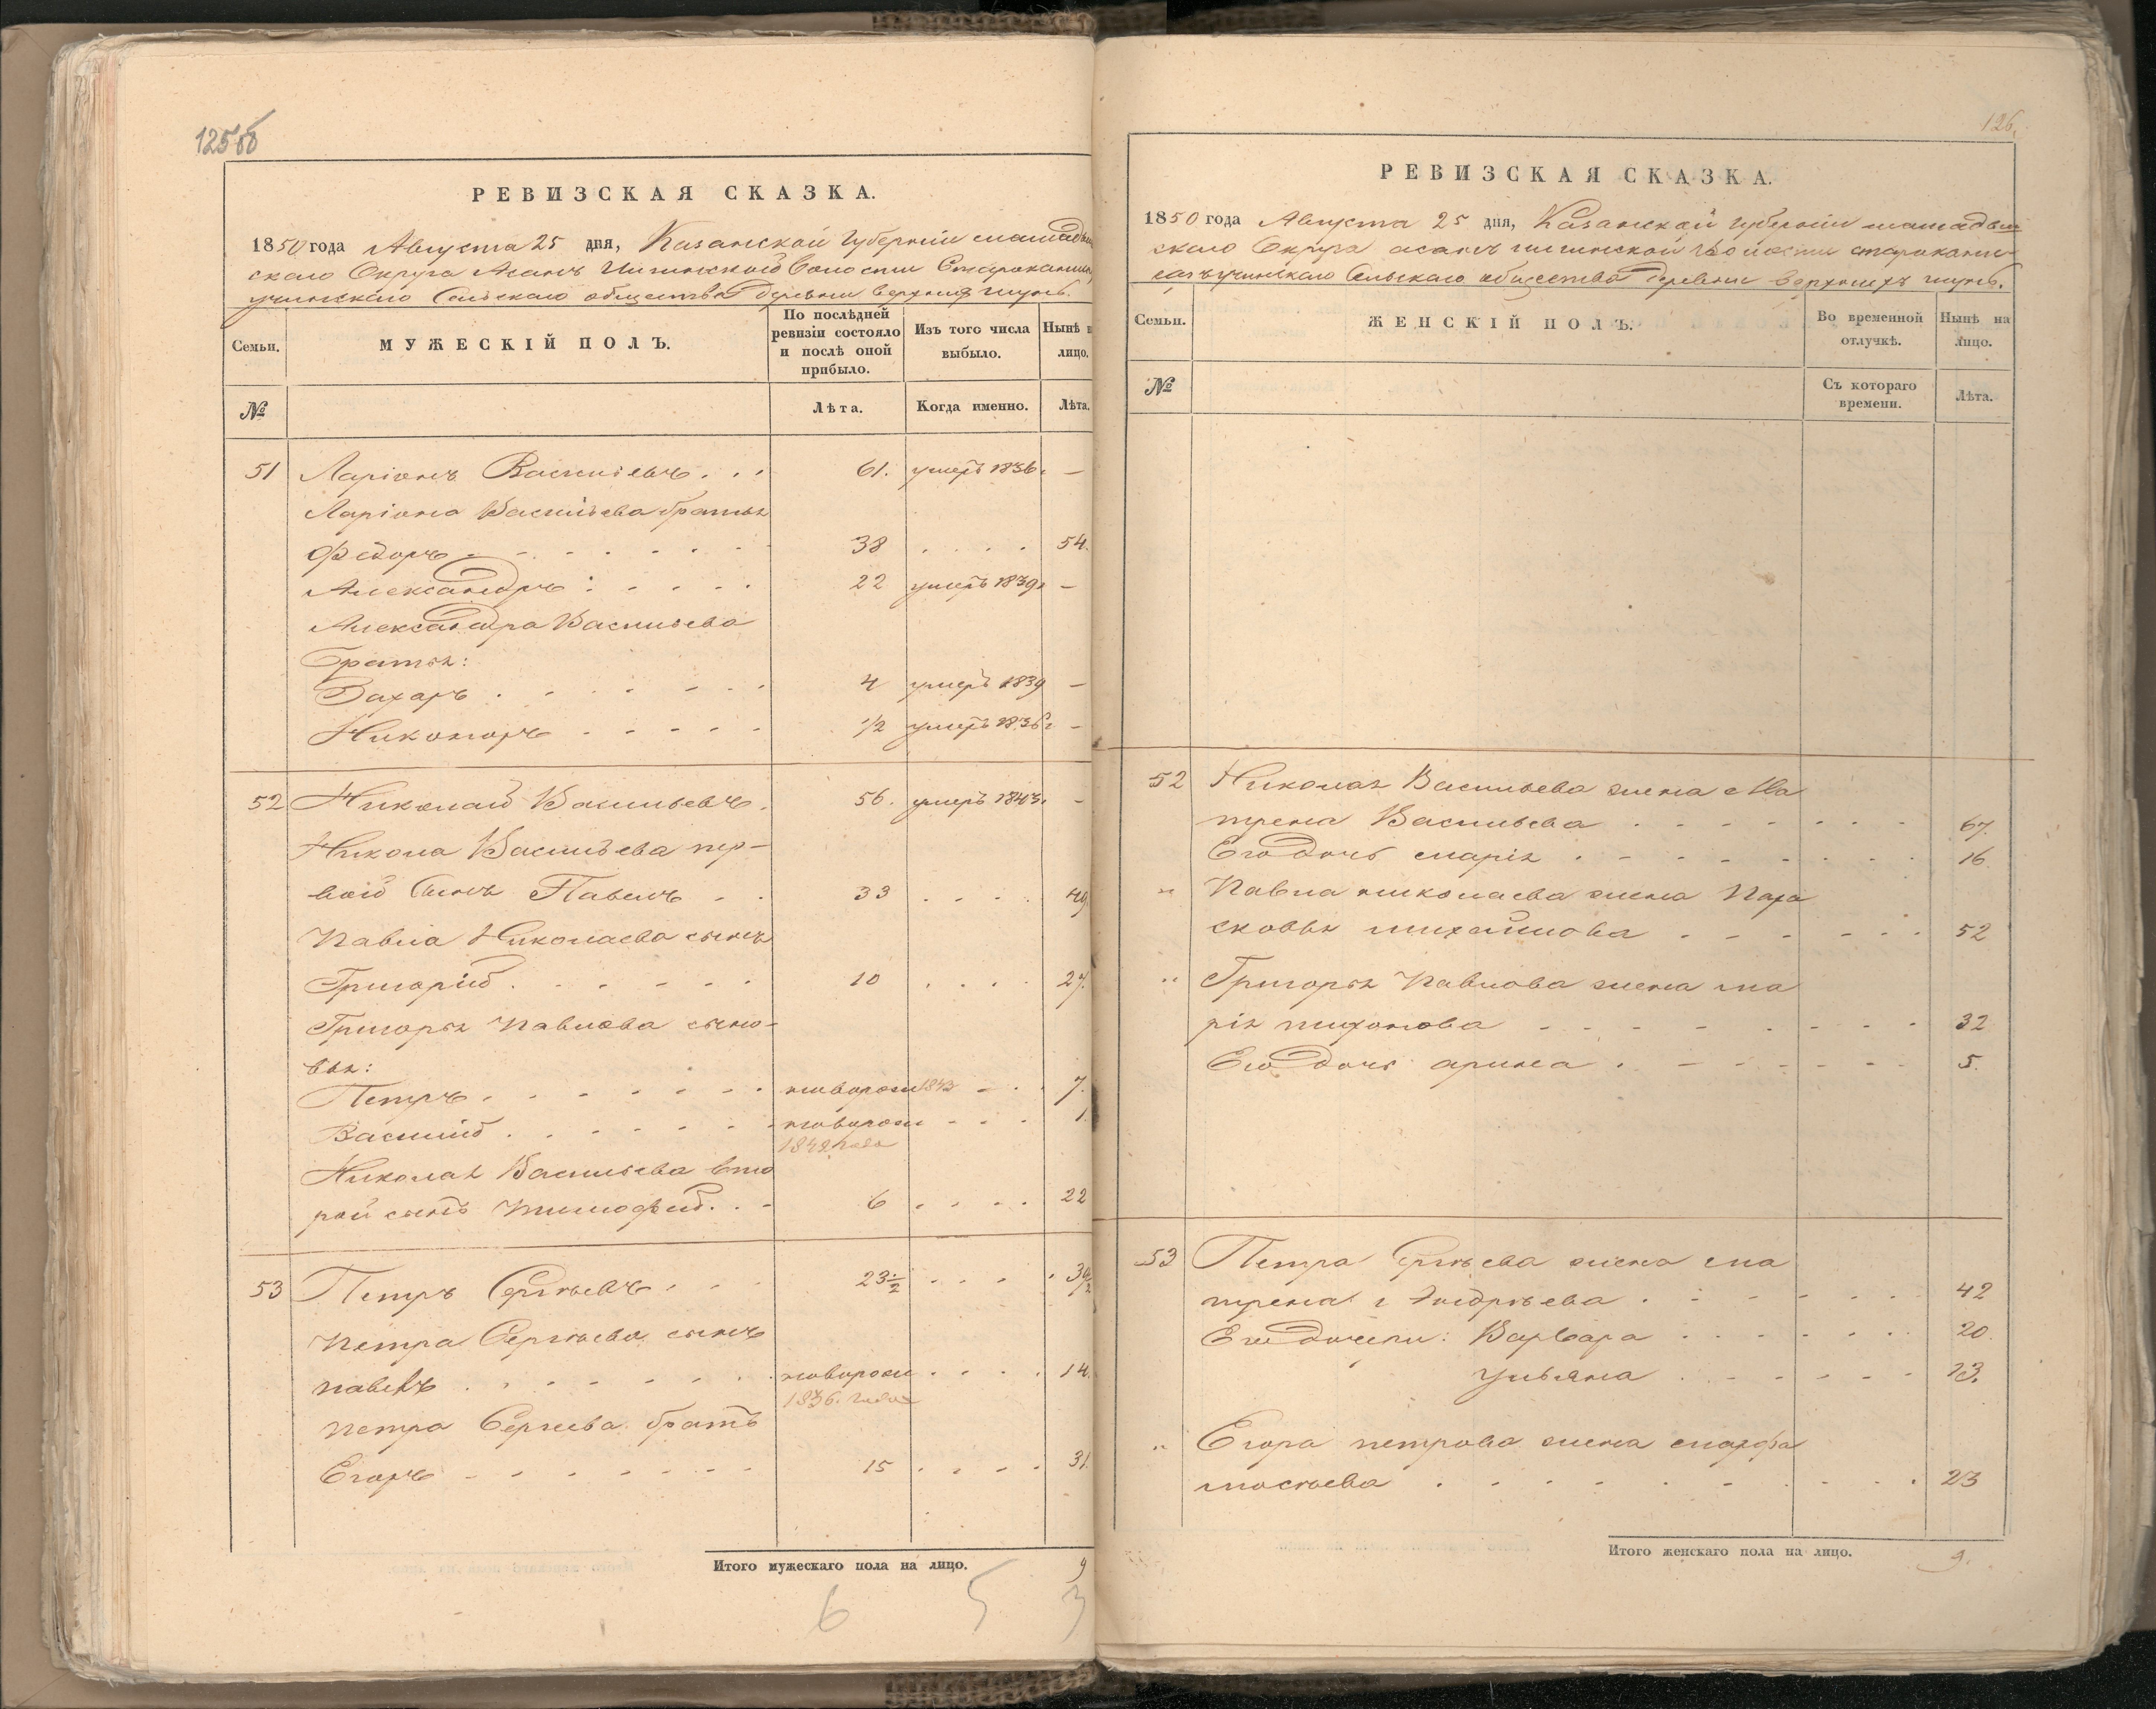 125об
РЕВИЗСКАЯ СКАЗКА.
1850 года Августа 25 дня, Казанской Губернии мамадыш
скаго Округа Асанъ Илгинской волости Старокамы
учинскаго Сельскаго общества деревни верхних шунь.
Семьи.
МУЖЕСКІЙ ПОЛЪ.
По послѣдней ревизіи состояло и послѣ оной прибыло.
Изъ того числа выбыло.
Нынѣ н лицо.
№
Лѣта.
Когда именно.
Лѣта.
51 Ларіонъ Васильевъ . . . 61. умеръ 1836. –
Ларіона Васильева братья
Федоръ - - - - - - 38 . . . . 54.
Александръ : - - - - 22 умеръ 1839г –
Александра Васильева
братья:
Захаръ . - - - - - - 4 умеръ 1839 –
Никоноръ - - - - - 1/2 умеръ 1836г –
52 Николай Васильевъ. 56. умеръ 1843. -
Никола Васильева пер-
вой сынъ Павелъ - - 33 . . . . 49.
Павла Николаева сынъ
Григорій . - - - - - 10 . . . . 27.
Григорья Павлова сыно-
вья:
Петръ . - - - - - - новорож 1843 - . . 7.
Василий . - - - - - - новорож - - - 1.
1849 года
Николая Васильева вто
рой сынъ Тимофей. . - 6 . . . . 22
53 Петръ Сергѣевъ . - - 23 1/2 . . . . 39 1/2
Петра Сергѣева сынъ
павелъ . - - - - - - новорож . . . . 14.
1836. года
петра Сергеева братъ
Егоръ - - - - - - - 15 . . . . 31.
Итого мужескаго пола на лицо. 9
6 5 3
126.
РЕВИЗСКАЯ СКАЗКА.
1850 года Августа 25 дня, Казанской губерніи мамадыш
скаго Округа асанъ илгинской волости старокамы
учинскаго Сельскаго общества деревни верхнихъ шунь.
Семьи.
ЖЕНСКІЙ ПОЛЪ.
Во временной отлучкѣ.
Нынѣ на лицо.
№
Съ котораго времени.
Лѣта.
52 Николая Васильева жена Ма
трена Васильева . - - - - - - 67.
Его дочь марія . - - - - - - - 16.
" Павла николаева жена Пара
сковья михайлова - - - - - - 52
" Григорья Павлова жена ма
рія тихонова - - - - - - - - - 32
Его дочь арина . - - - - - - - 5.
53 Петра Сергѣева жена ма
трена Андрѣева . - - - - - - 42
Его дочери: Варвара - - - - - - 20.
Ульяна - - - - - - 13.
" Егора петрова жена марфа
мосѣева . - - - - - - - - . 23
Итого женскаго пола на лицо. 9.